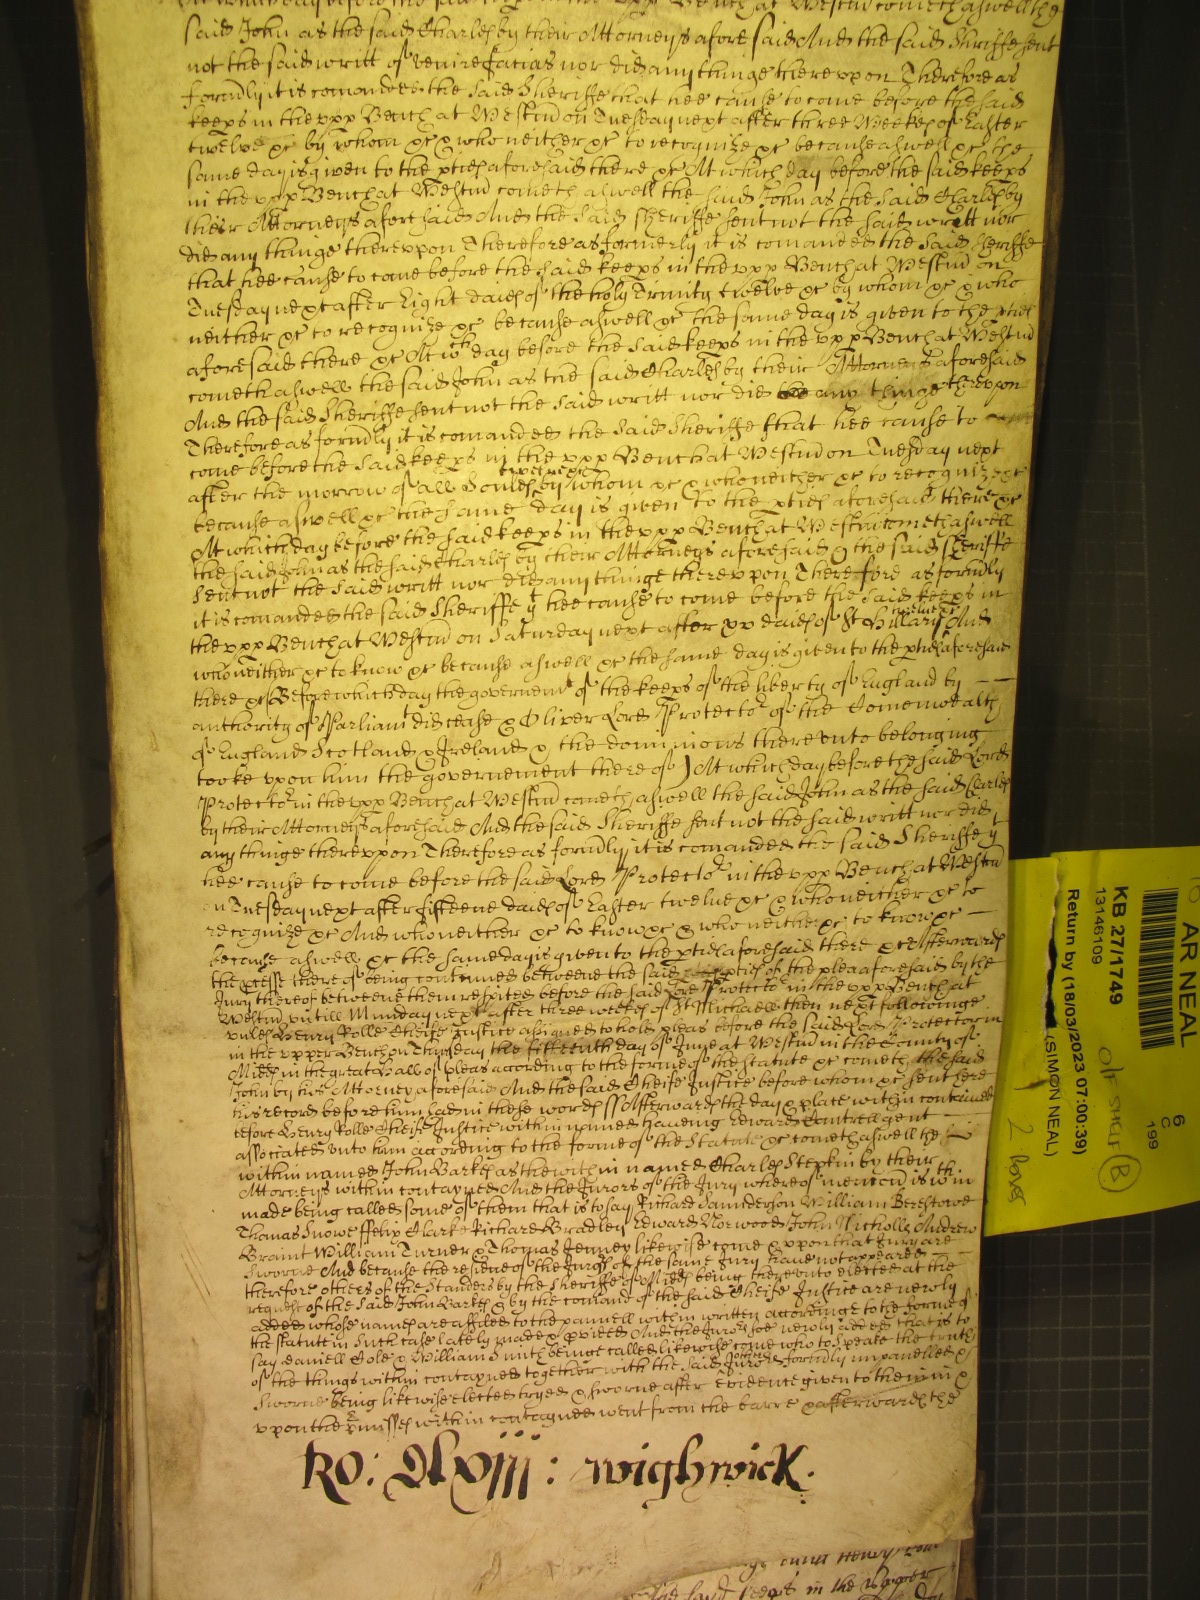 said John as the said Charles by their Attorneys aforesaid And the said Sheriffe sent
not the said writt of venire facias nor did any thinge therevpon Therefore as
formly it is comanded the said Sheriffe that hee cause to come before the said
keeps in the vpp Bench at Westm on Tuesday next after three Weekes of Easter
twelve &c by whom &c & who neither &c to recognize &c because aswell &c the
same day is given to the pties aforesaid there &c At which day before the said keeps
in the vpp Bench at Westm cometh aswell the said John as the said Charles by
their Attorneys aforesaid And the said Sheriffe sent not the said writt nor
did any thinge therevpon Therefore as formerly it is comanded the said Sheriffe
that hee cause to come before the said keeps in the vpp Bench at Westm on
Tuesday next after Eight daies of the holy Trinity twelve &c by whom &c & who
neither &c to recognize &c because aswell &c the same day is given to the pties
aforesaid there &c At wch day before the said keeps in the vpp Bench at Westm
cometh aswell the said John as the said Charles by their Attorneys aforesaid
And the said Sheriffe sent not the said writt nor did any thinge therevpon
Therefore as formly it is comanded the said Sheriffe that hee cause to
come before the said keeps in the vpp Bench at Westm on Tuesday next
after the morrow of all Soules twelve &c by whom &c & who neither &c to recognize &c
because aswell &c the same day is given to the pties aforesaid there &c
At which day before the said keeps in the vpp Bench at Westm cometh aswell
the said John as the said Charles by their Attorneys aforesaid & the said Sheriffe
sent not the said writt nor did any thinge therevpon Therefore as formly
it is comanded the said Sheriffe yt hee cause to come before the said keeps in
the vpp Bench at Westm on Saturday next after xv daies of St Hillary twelve &c And
who neither &c to know &c because aswell &c the same day is given to the pties aforesaid
there &c Before which day the governemt of the keeps of the liberty of England by
authority of Parliamt did cease & Oliver Lord Protector of the Comonwealth
of England Scotland & Ireland & the dominions therevnto belonging
tooke vpon him the governement thereof At which day before the said Lord
Protector in the vpp Bench at Westm cometh aswell the said John as the said Charles
by their Attorneys aforesaid And the said Sheriffe sent not the said writt nor did
any thinge therevpon Therefore as formly it is comanded the said Sheriffe yt
hee cause to come before the said Lord Protector in the vpp Bench at Westm
on Tuesday next after fifteene daies of Easter twelve &c & who neither &c to
recognize &c And who neither &c to know &c & who neither &c to know &c
because aswell &c the same day is given to the pties aforesaid there &c Afterwards
the pcesse thereof being continued betweene the said pties of the plea aforesaid by the
Jury thereof betweene them respited before the said Lord Protector in the vpp Bench at
Westm vntill Munday next after three weekes of St Michael then next followinge
vnles Henry Rolle Cheife Justice assigned to hold pleas before the said Lord Protector in
in the vpper Bench on Thursday the fifteenth day of June at Westm in the County of
Midds in the great Hall of pleas according to the forme of the statute &c cometh the said
John by his Attorney aforesaid And the said Cheife Justice before whom &c sent here
his record before him had in these words ss Afterwards the day & place within contained
before Henry Rolle Cheife Justice within named haveing Edward Cantrell gent
associated vnto him according to the forme of the Statute &c cometh aswell the
within named John Barkes as the within named Charles Stepkin by their
Attorneys within contayned And the Jurors of the Jury whereof mencon is wthin
made being called some of them that is to say Richard Saunderson William Berestowe
Thomas Snowe ffelix Clarke Richard Bradley Edward Norwood John Nicholls Andrew
Braint William Turner & Thomas Jenney likewise come & vpon that Jury are
sworne And because the residue of the Jurors of the same Jury have not appeared
therefore others of the Standers by the Sheriffe of Midds being therevnto elected at the
request of the said John Barkes & by the comand of the said Cheife Justice are newly
added whose names are affiled to the pannell within written according to the forme of
the statute in such case lately made & pvided And the Jurors soe newly added that is to
say daniell Cole & William Smith being called likewise come who to speake the truth
of the things within contayned together with the said other Jurors formly impanelled &
sworne being likewise elected tryed & sworne after Evidence given to them in &
vpon the pmisses within contayned went from the barre & afterwards the
Ro: wighwick.
in the vpper
AR NEAL
KB 27/1749
13146109
Return by (18/03/2023 07:00:39)
(SIMON NEAL)
6
C
199
B
2 boxes